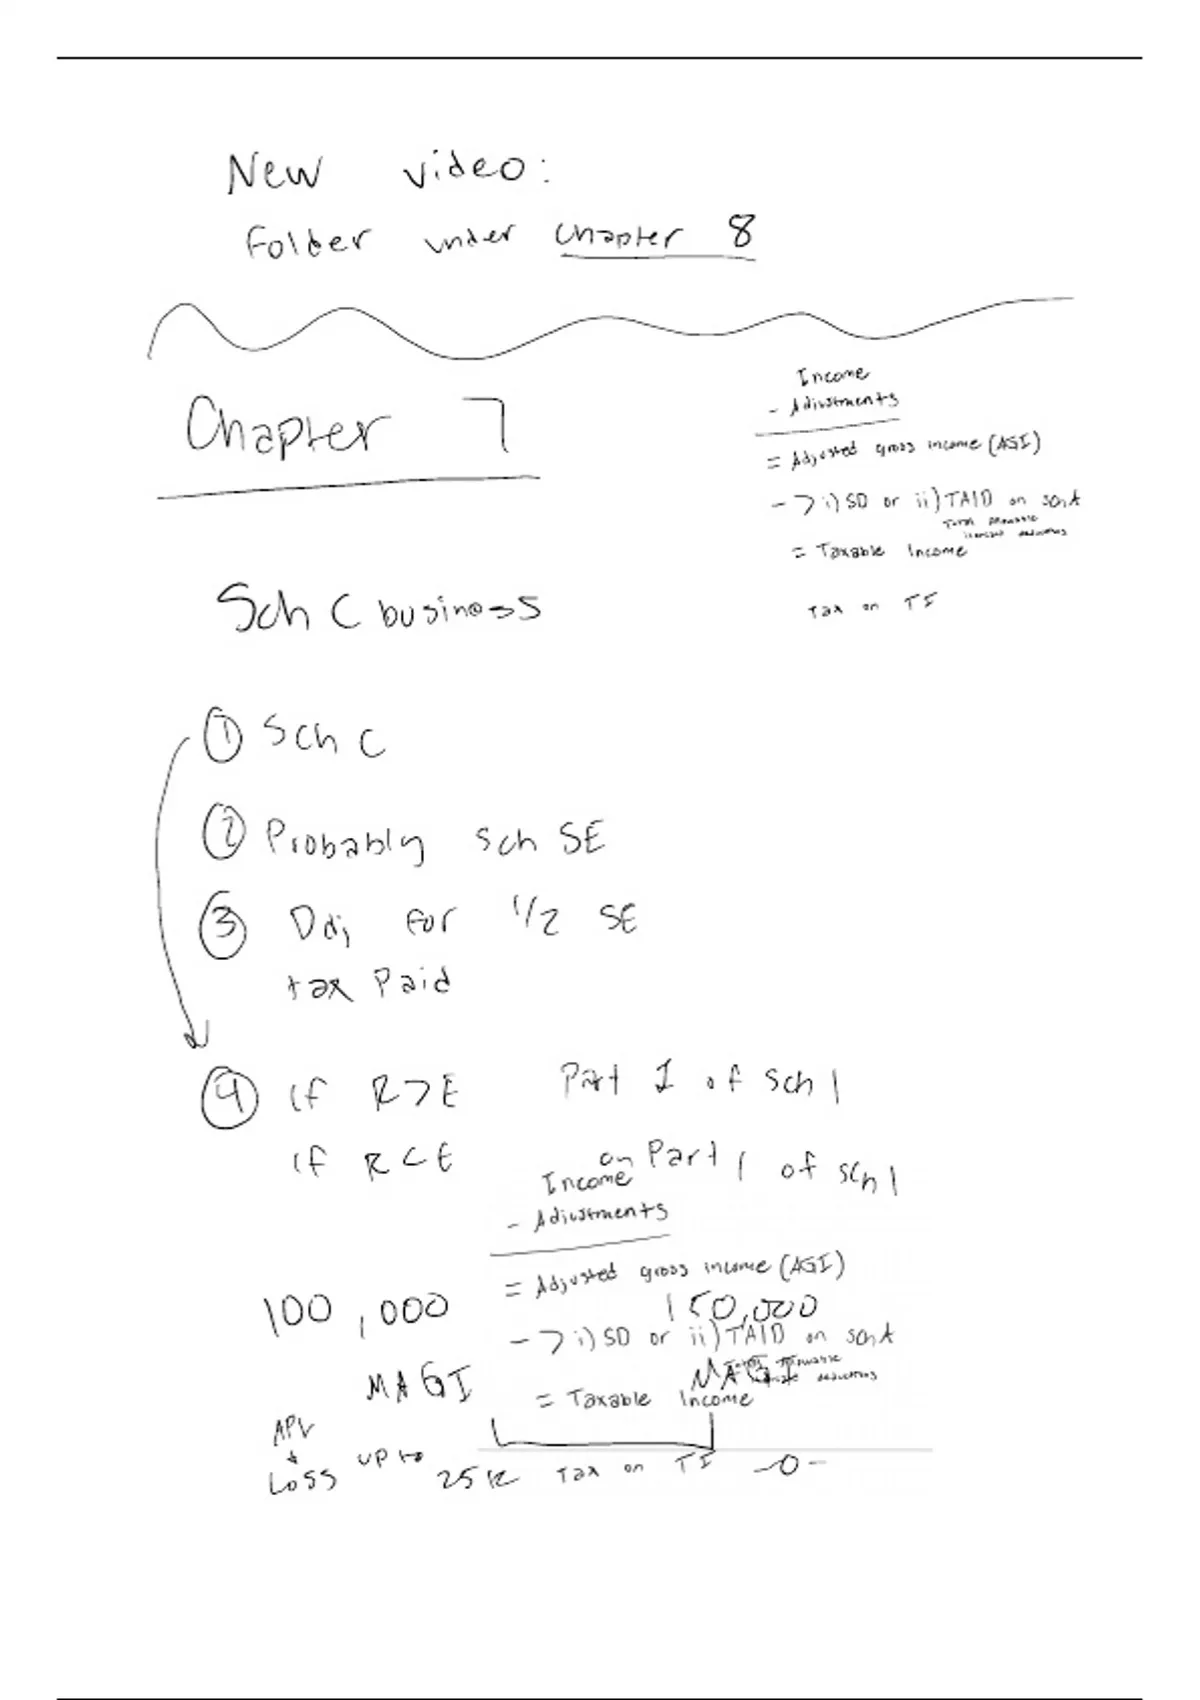 New video:
Folder under Chapter 8
Chapter 7
Income
- Adjustments
= Adjusted gross income (AGI)
- > i) SD or ii) TAID on Sch A
Total Allowable
itemized deductions
= Taxable Income
Tax on TI
Sch C business
① Sch C
② Probably Sch SE
③ Ddj for 1/2 SE
tax Paid
④ if R>E Part I of Sch 1
if R<E on Part 1 of Sch 1
Income
- Adjustments
= Adjusted gross income (AGI)
100,000 150,000
- > i) SD or ii) TAID on Sch A
MAGI MAGI
= Taxable Income
Loss up to 25k Tax on TI -0-